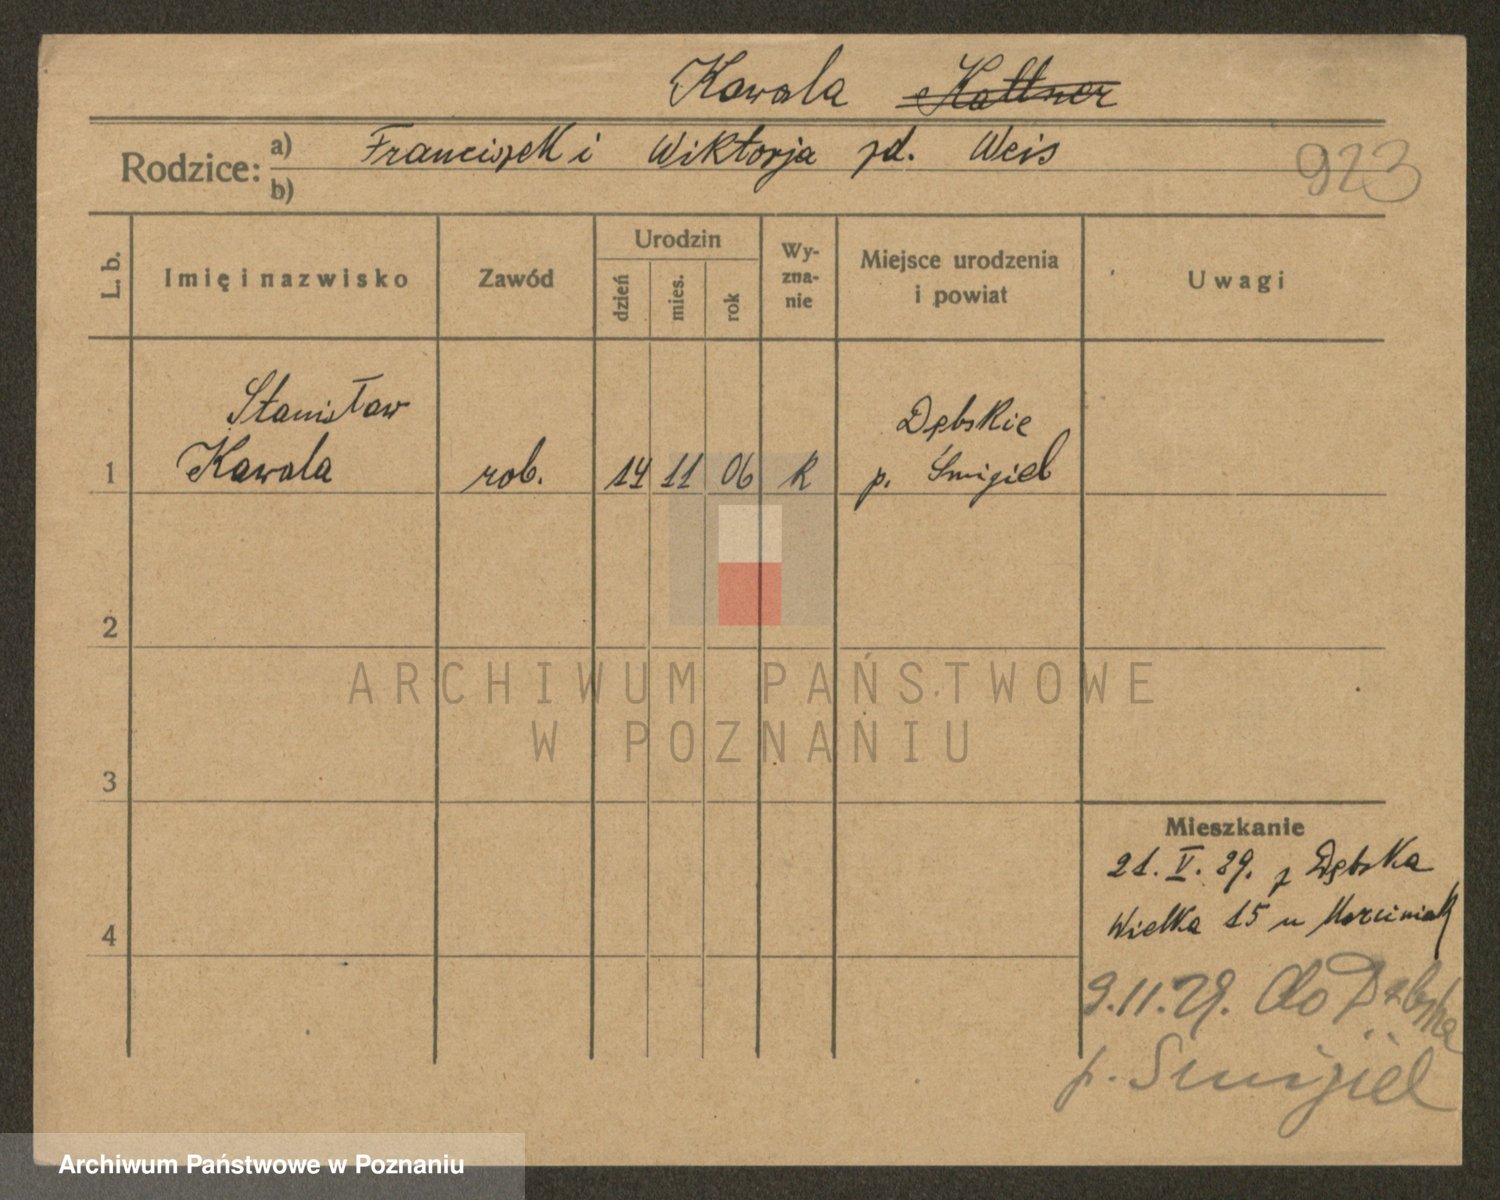 Kawala Kattner
Rodzice: a) Franciszek i Wiktorja zd. Weis
b)
923
L. b. Imię i nazwisko Zawód Urodzin dzień mies. rok Wyznanie Miejsce urodzenia i powiat Uwagi
Stanisław Dębskie
1 Kawala rob. 14 11 06 R p. Śmigiel
2
ARCHIWUM PAŃSTWOWE
W POZNANIU
3
Mieszkanie
21. V. 29. z Dębska
4 Wielka 15 u Marciniak
9.11.29. do Dębska
p. Śmigiel
Archiwum Państwowe w Poznaniu